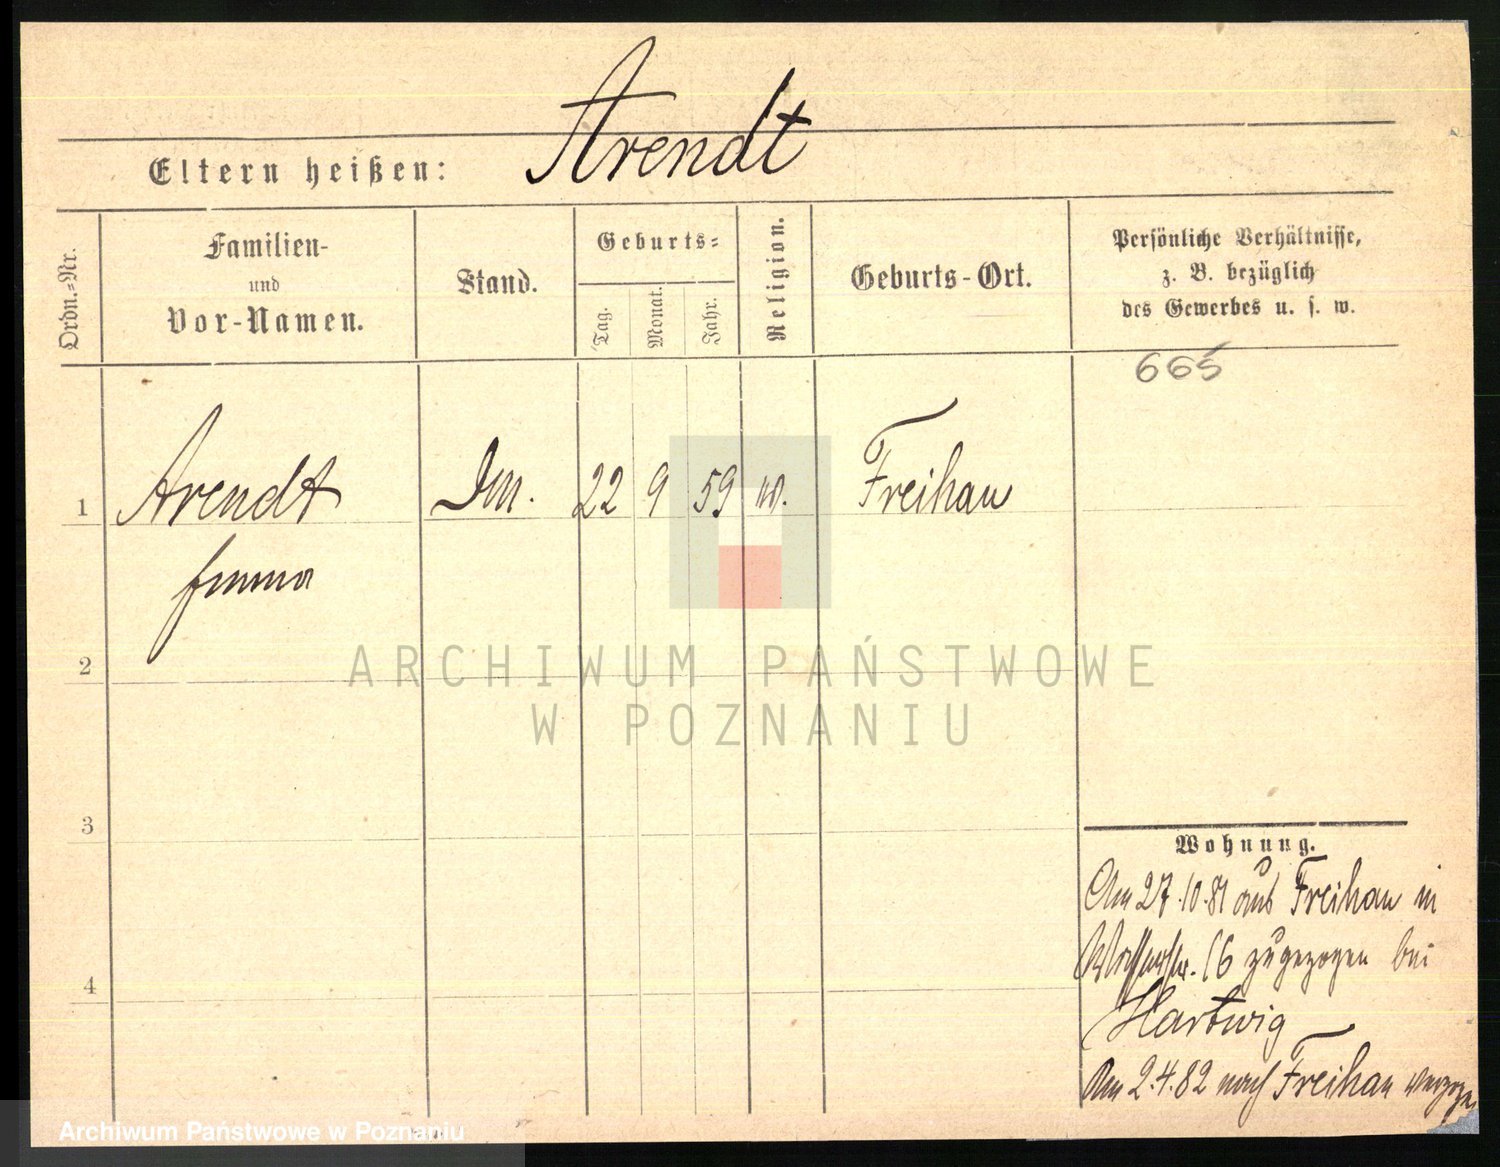 Arendt
Eltern heißen:
Ordn.-Nr.
Familien-
und
Vor-Namen.
Stand.
Geburts-
Tag.
Monat.
Jahr.
Religion.
Geburts-Ort.
Persönliche Verhältnisse,
z. B. bezüglich
des Gewerbes u. s. w.
665
1 Arendt 22 9 59 Freihan
Emma
2
3
4
Wohnung.
Am 27.10.81 aus Freihan in
Wasserstr. 16 zugezogen bei
Hartwig
Am 2.4.82 nach Freihan verzogen
ARCHIWUM PAŃSTWOWE
W POZNANIU
Archiwum Państwowe w Poznaniu